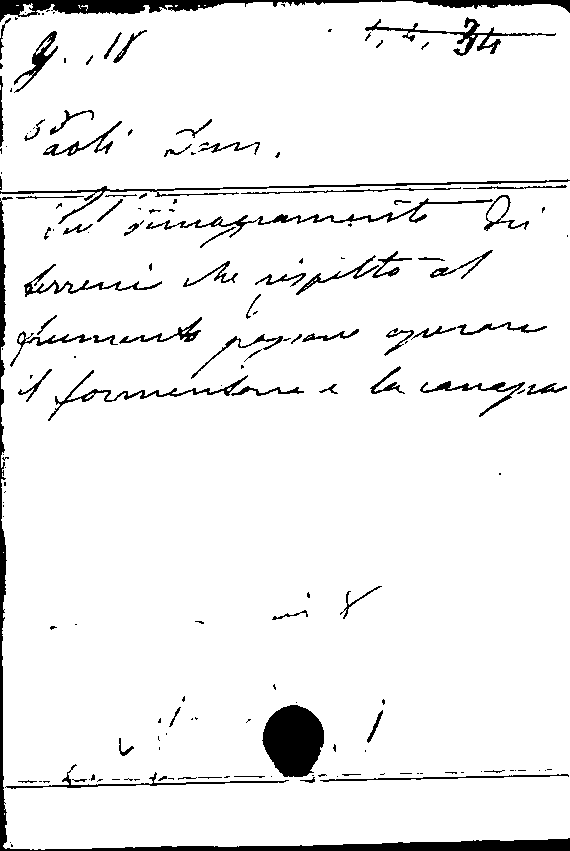 G. 18
1, 4, 34
Paoli Dom.
Sul dimagramento dei
terreni che rispetto al
frumento possono operare
il formentone e la canapa
in 8